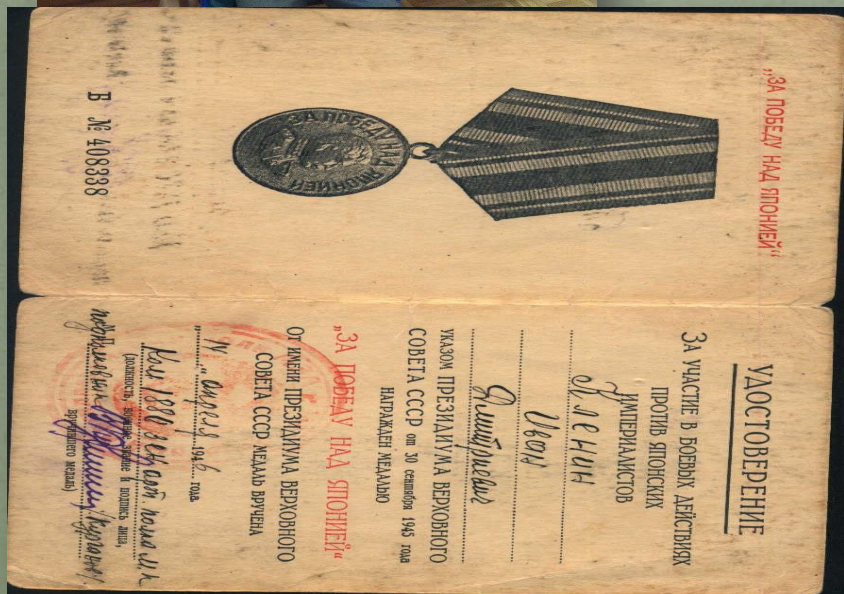 „ЗА ПОБЕДУ НАД ЯПОНИЕЙ“
ЗА ПОБЕДУ НАД
ЯПОНИЕЙ
В № 408338
УДОСТОВЕРЕНИЕ
ЗА УЧАСТИЕ В БОЕВЫХ ДЕЙСТВИЯХ
ПРОТИВ ЯПОНСКИХ
ИМПЕРИАЛИСТОВ
Кленин
Иван
Дмитриевич
УКАЗОМ ПРЕЗИДИУМА ВЕРХОВНОГО
СОВЕТА СССР от 30 сентября 1945 года
НАГРАЖДЕН МЕДАЛЬЮ
„ЗА ПОБЕДУ НАД ЯПОНИЕЙ“
ОТ ИМЕНИ ПРЕЗИДИУМА ВЕРХОВНОГО
СОВЕТА СССР МЕДАЛЬ ВРУЧЕНА
апреля 1946 года
1880 зен. арт. полка
(должность, воинское звание и подпись лица,
подполковник
вручившего медаль)